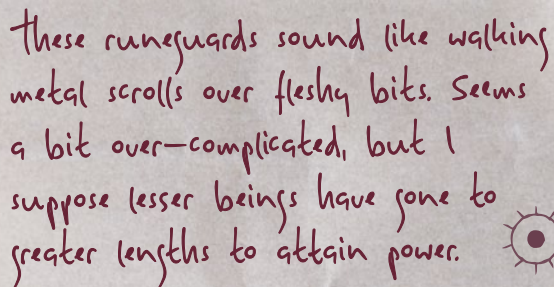 these runeguards sound like walking
metal scrolls over fleshy bits. Seems
a bit over-complicated, but I
suppose lesser beings have gone to
greater lengths to attain power.